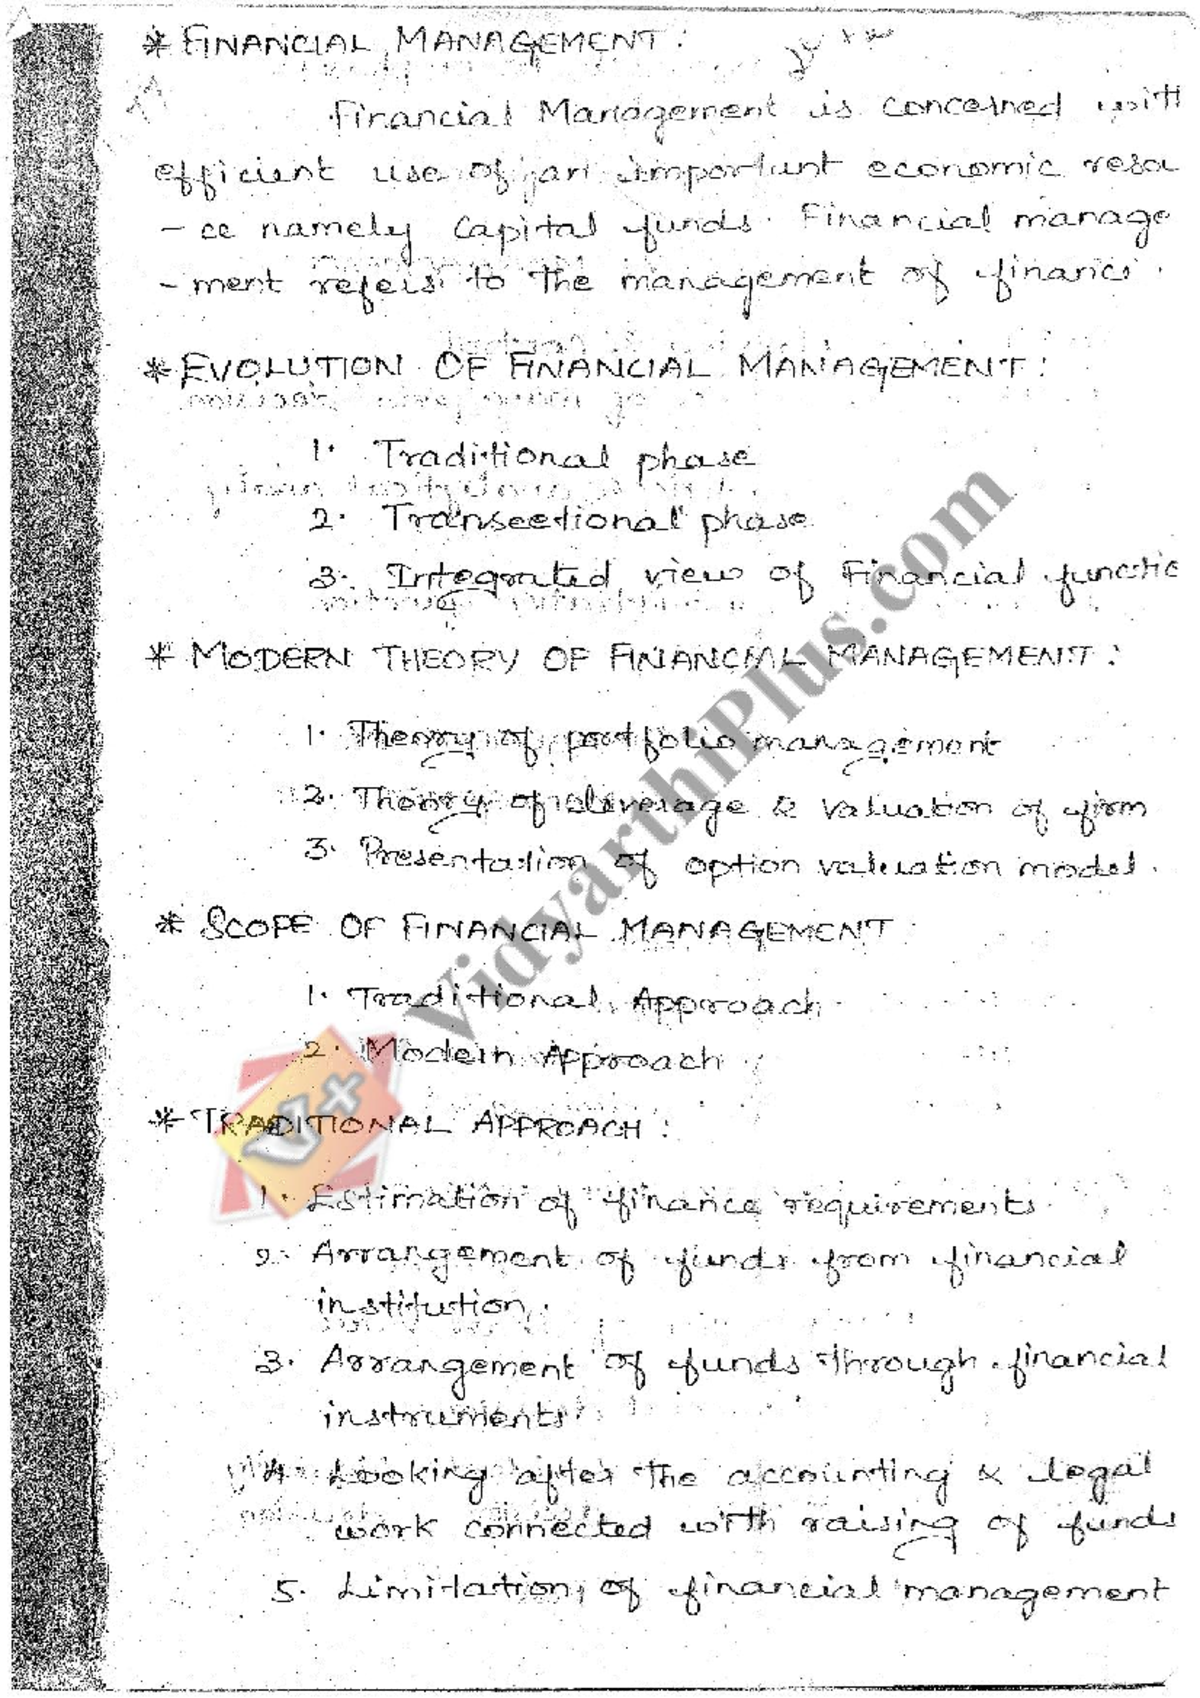 * FINANCIAL MANAGEMENT :
Financial Management is concerned with
efficient use of an important economic resou
- ce namely capital funds. Financial manage
- ment refers to the management of finance.
* EVOLUTION OF FINANCIAL MANAGEMENT :
1. Traditional phase
2. Transectional phase
3. Integrated view of Financial functio
* MODERN THEORY OF FINANCIAL MANAGEMENT :
1. Theory of portfolio management
2. Theory of leverage & valuation of firm
3. Presentation of option valuation model.
* SCOPE OF FINANCIAL MANAGEMENT
1. Traditional Approach
2. Modern Approach
* TRADITIONAL APPROACH :
1. Estimation of finance requirements
2. Arrangement of funds from financial
institution.
3. Arrangement of funds through financial
instruments
4. Looking after the accounting & legal
work connected with raising of funds
5. Limitation, of financial management
VidyarthiPlus.com
V+